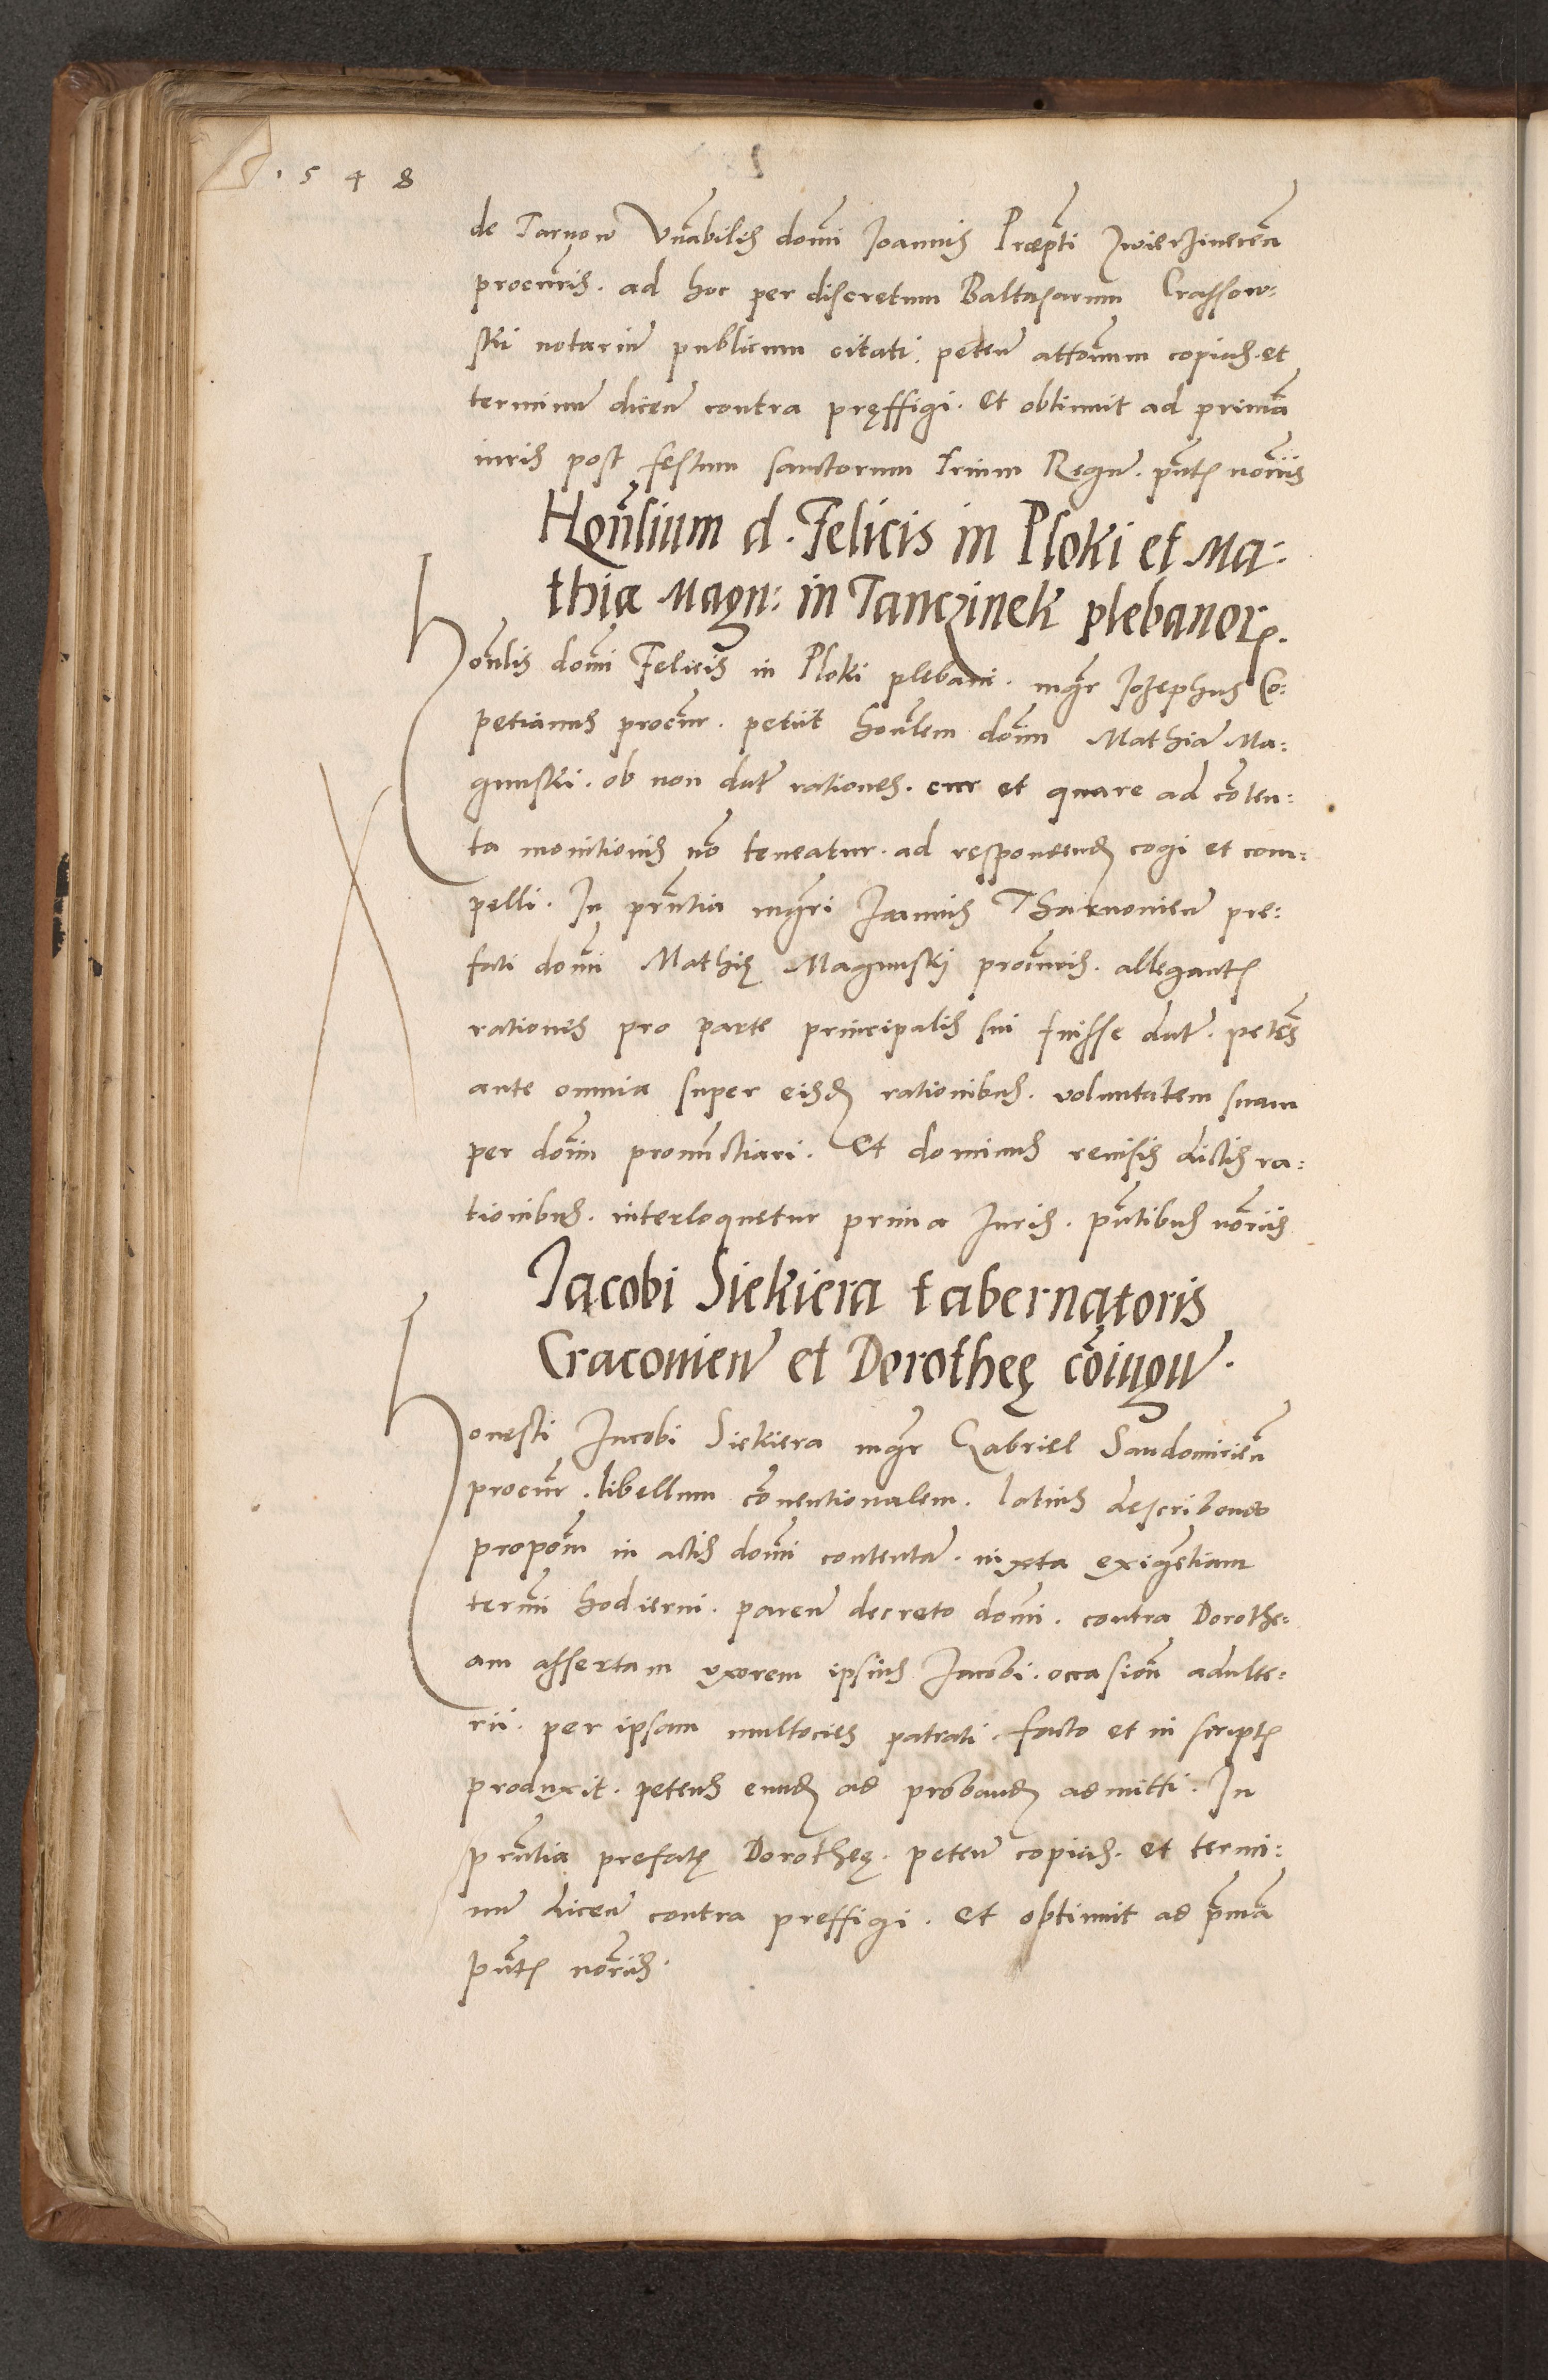 1548
de Tarnow Vn̄abilis domī Joannis Præpt̄i Zwierzinecen̄
procur̄is. ad hoc per discretum Baltasarum Crassow:
ski notariū publicum citati. peteñ attorum copias. et
terminū diceñ contra pręffigi. et obtinuit ad primā
iuris post festum sanctorum trium Regū. pn̄t nōriis
Hon̄lium d. Felicis in Ploki et Ma:
thiæ Magn: in Tanczinek plebanor.
Hon̄lis domī Felicis in Ploki plebani. mgr̄ Jozephus Co:
petianus procur̄. petiit honlem̄ dom̄ Mathiā Ma:
gnuski. ob non dat̄ rationes. cur et quare ad cōten:
ta monitionis nō teneatur. ad respondend cogi et com:
pelli. In pn̄tia mgr̄i Joannis Tharnovieñ pre:
fati domī Mathię Magnuski procur̄is. allegant
rationis pro parte principalis sui fuisse dat̄. petēs
ante omnia super eisd rationibus. voluntatem suam
per dom̄ pronunctiari. Et dominus revisis dictis ra:
tionibus. interloquetur prima Juris. pn̄tibus nōriis
Jacobi Siekiera tabernatoris
Cracovieñ et Dorotheę cōiugū.
Honesti Jacobi Siekiera mgr̄ Gabriel Sandomirieñ
procur̄. libellum cōventionalem. latius describendo
propom̄ in actis domī contentā. iuxta exigētiam
termī hodierni. pareñ decreto domī. contra Dorothe:
am assertam uxorem ipsius Jacobi. occasion̄ adulte:
rii. per ipsam multocies patrati. facto et in script
produxit. petens eund ad proband admitti. In
pn̄tia prefatę Dorotheę. peteñ copias. et termi:
nū diceñ contra preffigi. et obtinuit ad pr̄mā
pn̄t nōriis.